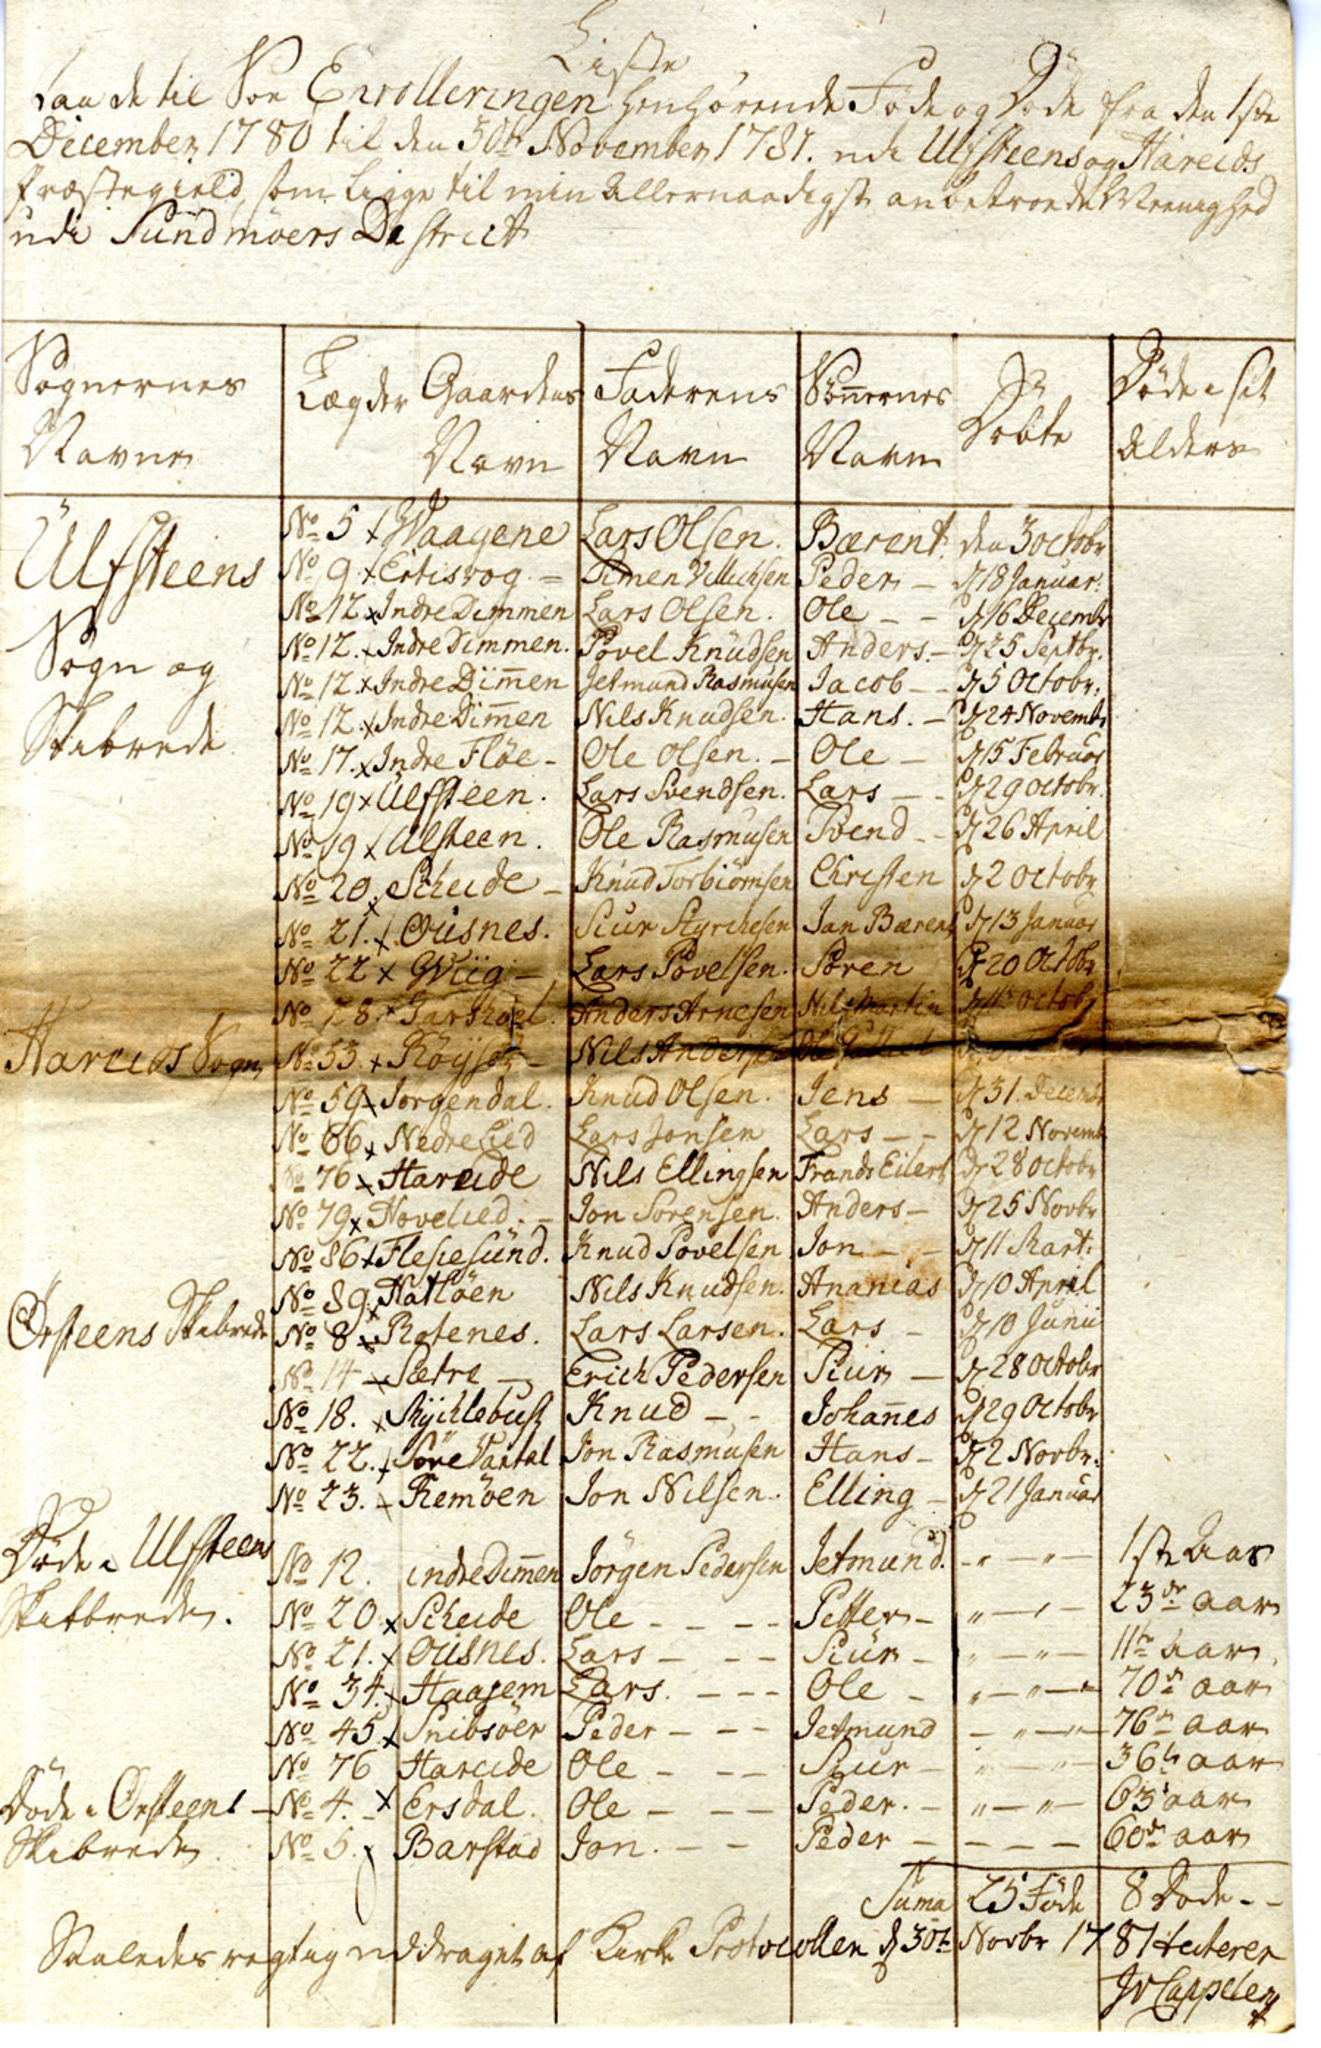 Liste
Paa de til Søe Enrolleringen henhørende Føde og Døde fra den 1ste
December 1780 til den 30te November 1781. udi Ulfsteens og Hareids
Præstegield, som ligge til min allernaadigst anbetroede Meenighed
udi Sundmöers District
Sognernes Navne | Lægder | Gaardens Navn | Faderens Navn | Sönnernes Navn | Er Döbte | Döde i sit Alders
Ulfsteens Sogn og Skibrede | No 5 x | Waagene | Lars Olsen. | Bærent. | den 3 octobr
No 9 x | Ertisvog = | Simen Villichsen | Peder – | d 18 Januar:
No 12 x | Indre Dimmen | Lars Olsen. | Ole – – | d 16 Decembr
No 12. x | Indre Dimmen. | Povel Knudsen | Anders. – | d 25 Septbr.
No 12 x | Indre Dim̄en | Jetmund Rasmusen | Jacob – – | d 5 Octobr.
No 12. x | Indre Dim̄en | Nils Knudsen. | Hans. – | d 24 Novembr
No 17. x | Indre Flöe – | Ole Olsen. – | Ole – | d 15 Februar
No 19 x | Ülfsteen. | Lars Svendsen. | Lars – – | d 29 octobr.
No 19 x | Ulsteen. | Ole Rasmusen | Svend – | d 26 April
No 20. x | Scheide – | Knud Torbiörnsen | Christen | d 2 Octobr
No 21. x | Ousnes. | Siur Styrchesen | Jan Bærent | d 13 Januar
No 22 x | Wiig – | Lars Povelsen. | Sören | d 20 Octobr
No 28. x | Garshoel. | Anders Arnesen | Nils Martin | octobr
Hareids Sogn | No 53. x | Röyset – | Nils Andersen | Ole
No 59 x | Jörgendal. | Knud Olsen. | Jens – | d 31. Decembr
No 66 x | Nedre Lied | Lars Jonsen | Lars – – | d 12 Novemb
No 76 x | Hareide | Nils Ellingsen | Frands Eilert | d 28 octobr
No 79 x | Hovelied. – | Jon Sörensen. | Anders – | d 25 Novbr
No 86 x | Flesiesünd. | Knud Povelsen | Jon – – | d 11 Mart:
No 89 x | Hatlöen | Nils Knudsen. | Ananias | d 10 April
Örsteens Skibrede | No 8 x | Rotenes. | Lars Larsen. | Lars – | d 10 Junii
No 14 x | Sætre – | Erich Pedersen | Siur – | d 28 Octobr
No 18. x | Myklebust | Knud – – | Johan̄es | d 29 Octobr
No 22. x | Söre Vartdal | Jon Rasmusen | Hans – | d 2 Novbr:
No 23. – | Remöen | Jon Nilsen. | Elling – | d 21 Januar
Döde i Ulfsteens Skibrede. | No 12. | indre Dim̄en | Jörgen Pedersen | Jetmund. | – „ – „ – | 1ste Aar
No 20 x | Scheide | Ole – – – – | Petter – | „ – „ – | 23de aar
No 21. x | Ousnes. | Lars – – – | Siür – | „ – „ – | 11te aar
No 34. x | Haasem | Lars. – – – | Ole – | „ – „ – | 70de aar
No 45. x | Snibsöer | Peder – – – | Jetmund | – „ – „ – | 76de aar
No 76 | Hareide | Ole – – – | Siur – | „ – „ – | 36te aar
Döde i Örsteens – Skibrede | No 4. x | Ersdal. | Ole – – – | Peder. – | „ – „ – | 63 aar
No 5. x | Barstad | Jon. – – | Peder – | – – – | 60de aar
Sum̄a | 25 Föde | 8 Döde – –
Saaledes rigtig uddraget af Kirke Protocollen d 30te Novbr 1781 testerer
JvCappelen